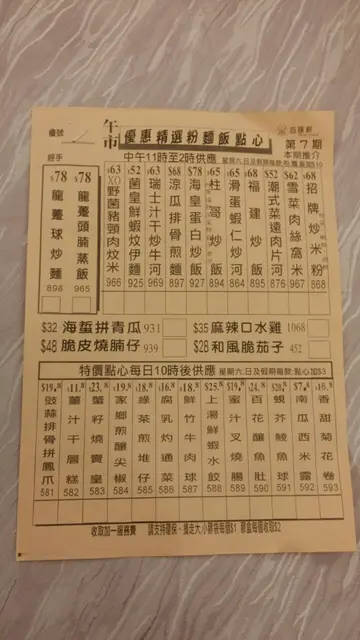 檯號
午市
優惠精選粉麵飯點心
第7期
經手
中午11時至2時供應
本期推介
$78 龍躉球炒麵 898
$78 龍躉頭腩蒸飯 965
$63 XO野菌豬頸肉炆米 966
$52 菌皇鮮蝦炆伊麵 925
$63 瑞士汁干炒牛河 969
$68 涼瓜排骨煎麵 897
$78 海皇蛋白炒飯 927
$65 柱 炒飯 894
$65 滑蛋蝦仁炒河 895
$68 福建炒飯 895
$52 潮式菜遠肉片河 970
$62 雪菜肉絲窩米 967
$68 招牌炒米粉 868
$32 海蜇拼青瓜 931
$35 麻辣口水雞 1068
$48 脆皮燒腩仔 939
$28 和風脆茄子 452
特價點心每日10時後供應
星期六,日及假期每款:點心加$3
$19.8 豉蒜排骨拼鳳爪 581
$11.8 薑汁千層糕 582
$23.8 蟹籽燒賣皇 583
$19.8 家鄉煎釀尖椒 584
$18.8 綠菜煎堆仔 585
$16.8 腐乳灼通菜 586
$18.8 鮮竹牛肉球 587
$25.8 上湯鮮蝦水餃 588
$19.8 蜜汁叉燒腸 589
$24.8 百花釀魚肚 590
$20.8 蜆芥鯪魚球 591
$7.8 南瓜西米露 592
$16.8 香甜菊花卷 593
收取加一服務費
請支持環保、獲走大,小膠袋每個$1 膠盒每個收取$2